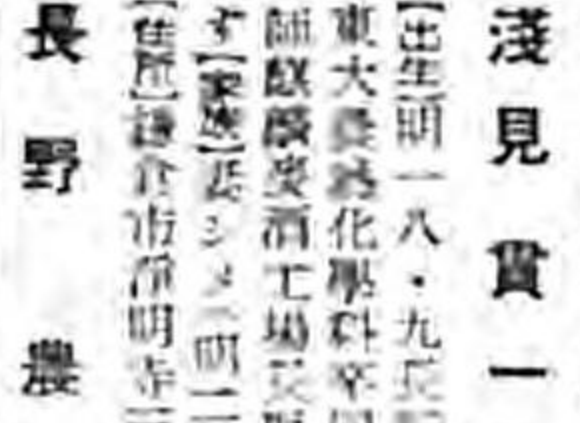 淺見貫一
【出生】明一八・九長
東大農藝化學科卒
師麒麟麥酒工場長
す【家族】妻シメ（明二
【住所】鎌倉市淨明寺
長野 農